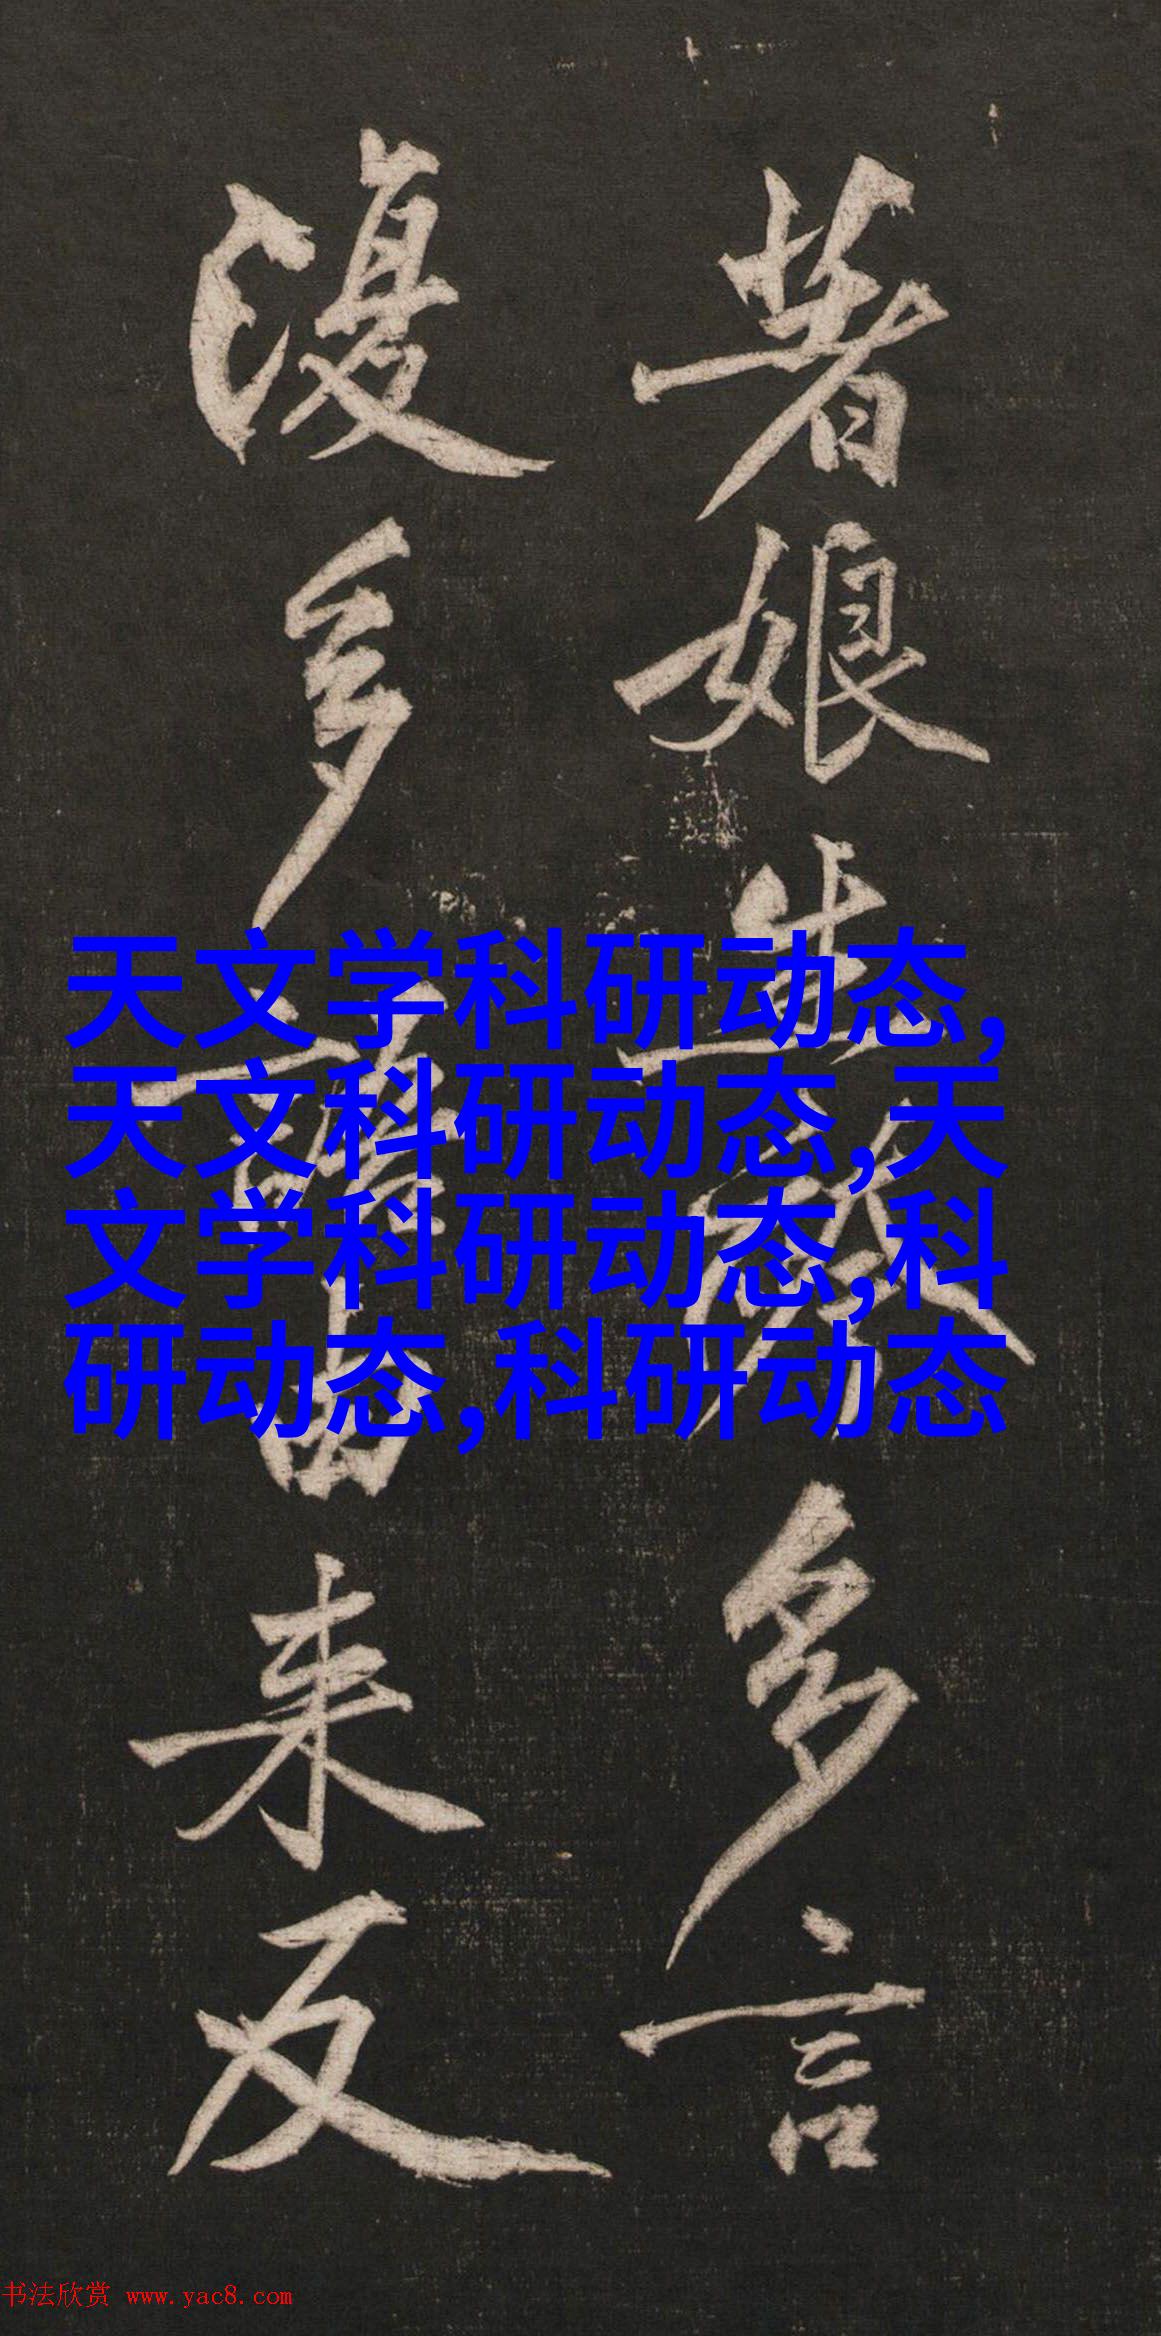 著娘生
多言
漫多
由来反
天文学科研动态,
天文科研动态,天
文学科研动态,科
研动态,科研动态
书法欣赏 www.yac8.com